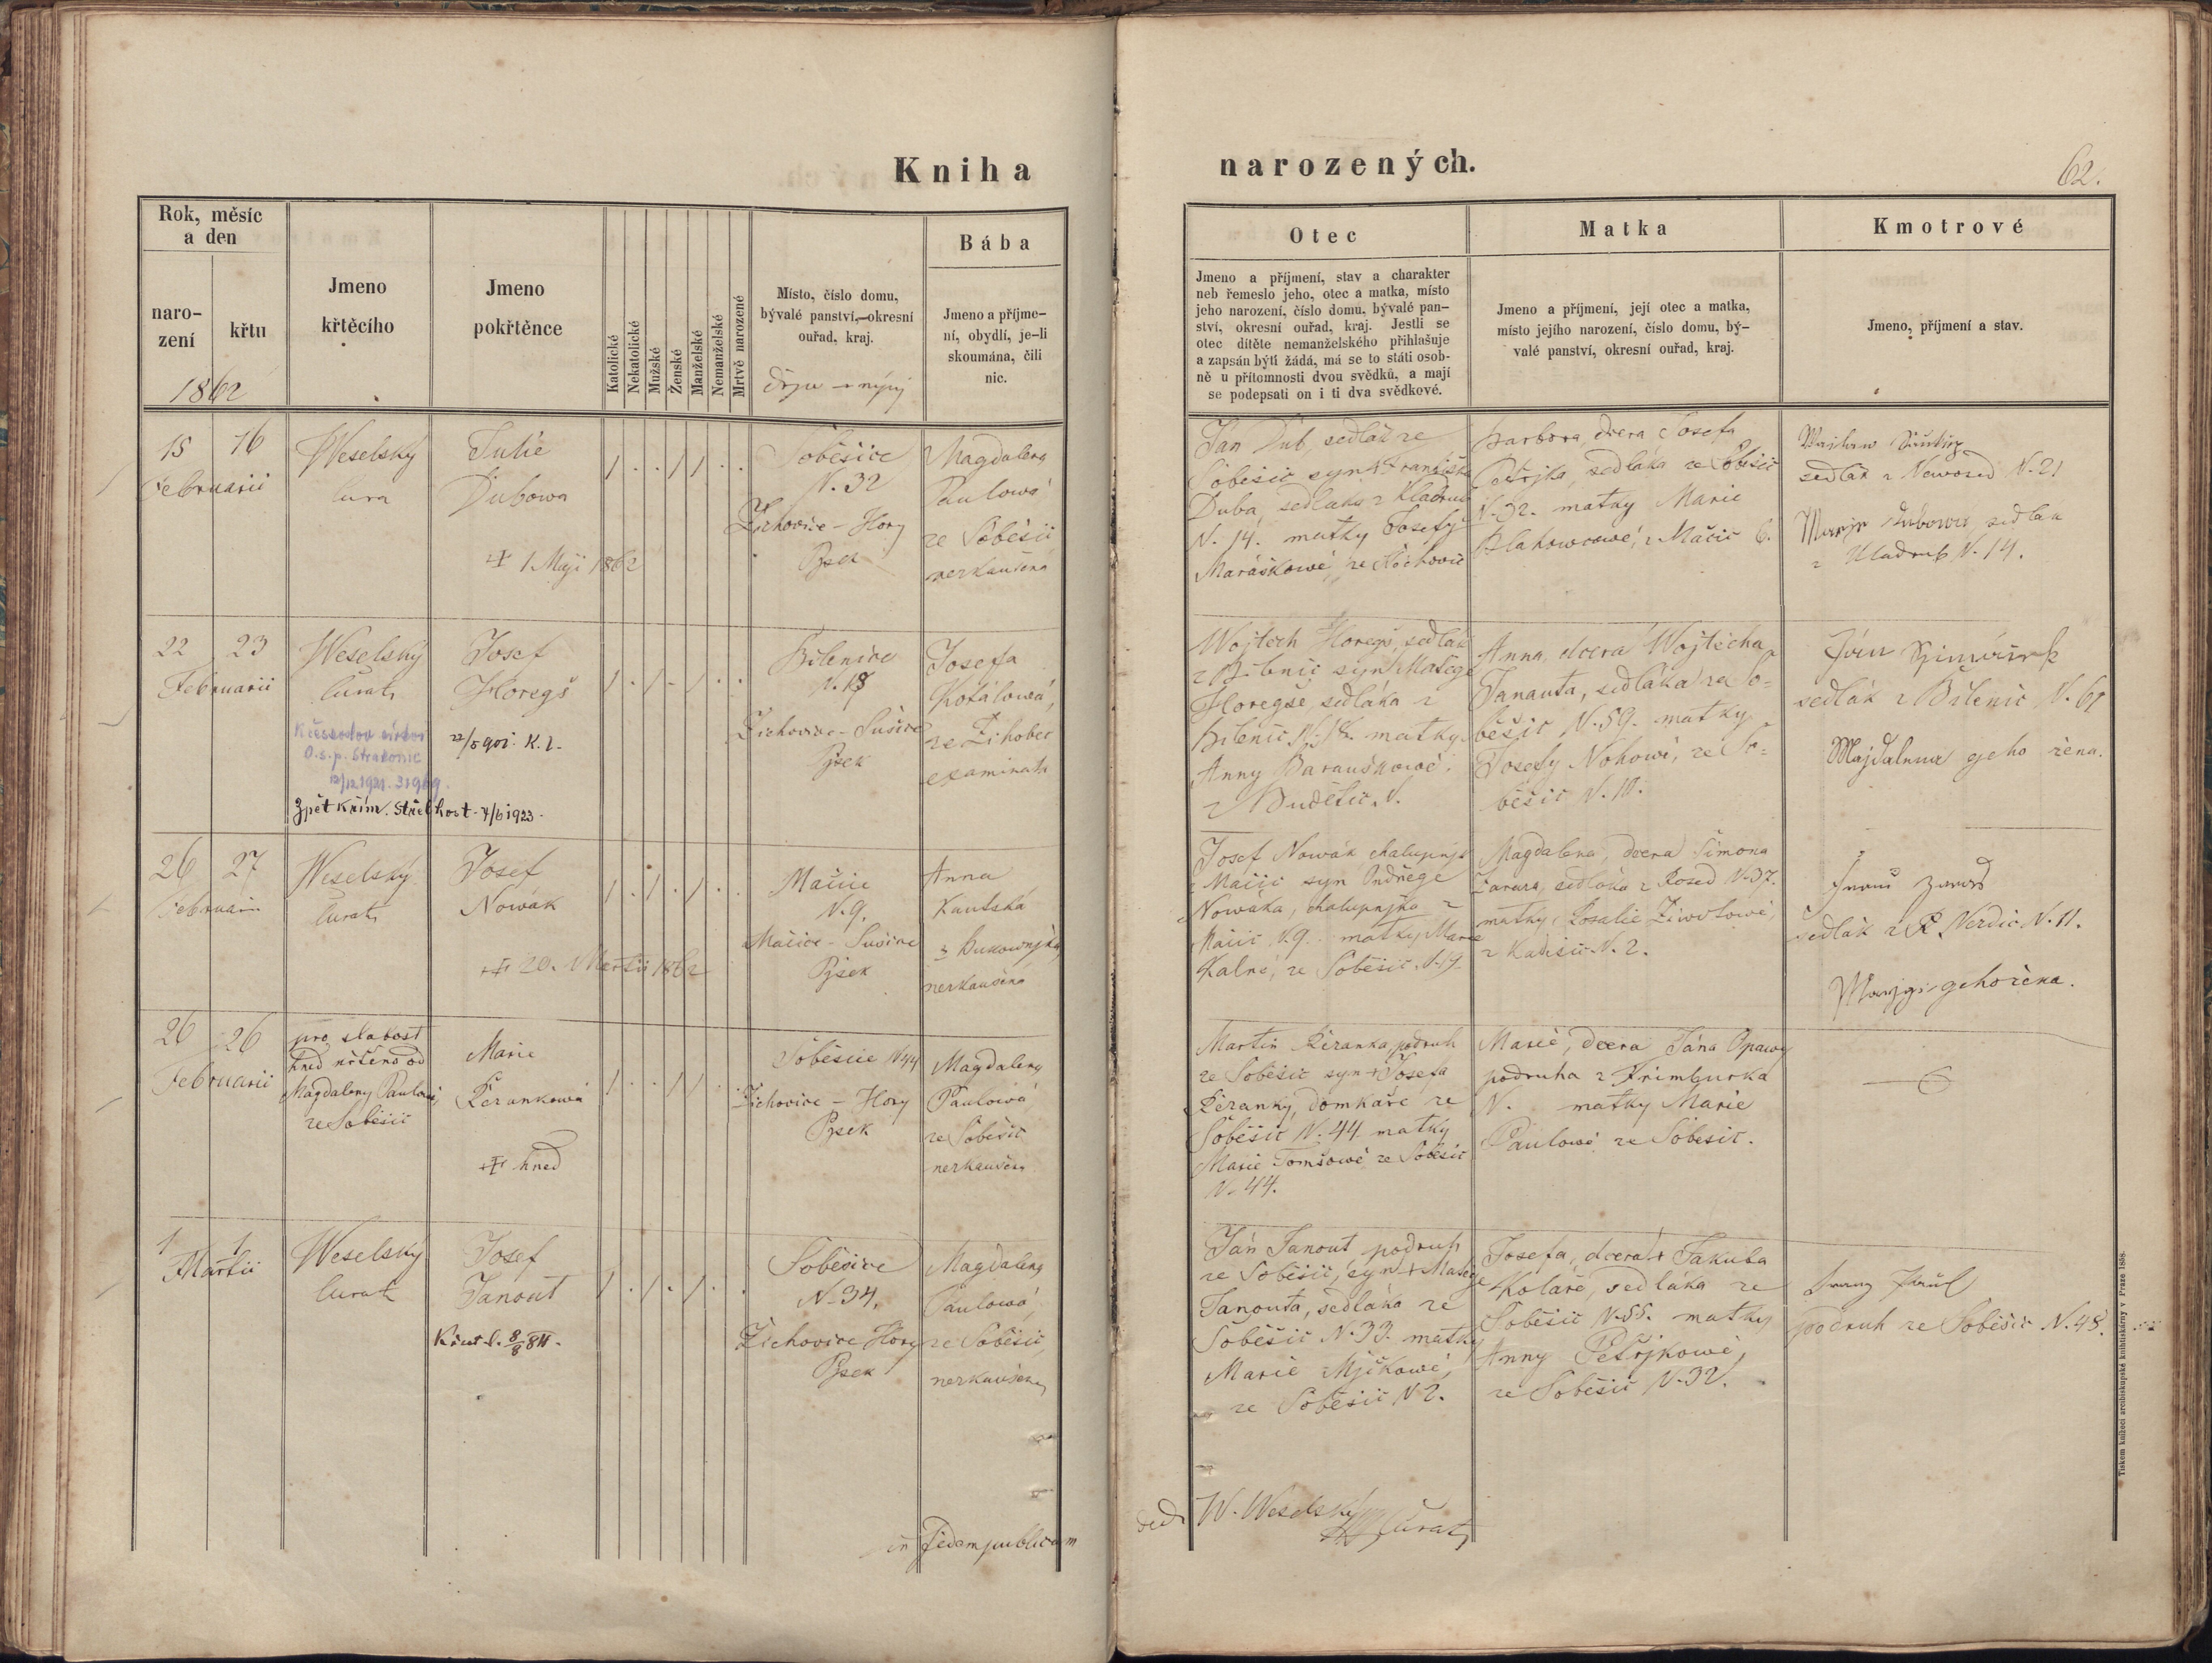 Kniha
narozených.
62.
Rok, měsíc
a den
naro-
zení
křtu
1862
Jmeno
křtěcího
Jmeno
pokřtěnce
Katolické
Nekatolické
Mužské
Ženské
Manželské
Nemanželské
Mrtvě narozené
Místo, číslo domu,
bývalé panství, okresní
ouřad, kraj.
Bába
Jmeno a příjme-
ní, obydlí, je-li
skoumána, čili
nic.
Otec
Jmeno a příjmení, stav a charakter
neb řemeslo jeho, otec a matka, místo
jeho narození, číslo domu, bývalé pan-
ství, okresní ouřad, kraj. Jestli se
otec dítěte nemanželského přihlašuje
a zapsán býti žádá, má se to státi osob-
ně u přítomnosti dvou svědků, a mají
se podepsati on i ti dva svědkové.
Matka
Jmeno a příjmení, její otec a matka,
místo jejího narození, číslo domu, bý-
valé panství, okresní ouřad, kraj.
Kmotrové
Jmeno, příjmení a stav.
15 16
Februarii
Weselský
Julie
Dubowa
+ 1 Maji 1862
Soběšice
N. 32
Žichovice - Hory
Pjsek
Magdalena
Paulowá
ze Soběšic
nezkaušená
Jan Dub, sedlák ze
Soběšic syn + Františka
Duba, sedláka z Kladrub
N. 14. matky Josefy
Maráškowé, ze
Barbora, dcera Josefa
Petřjka, sedláka ze Soběšic
N. 32. matky Marie
z Mačic 6.
sedlák z Nowosed N. 21
Dubowa sedlka
z Kladrub N. 14.
22 23
Februarii
Weselský
Curat
O.s.p. Strakonic
12/12 1921. 31969.
Zpět Křím. Střelhost - 7/6 1923.
Josef
Horegš
22/5 901. K. l.
Bilenice
N. 18
Žichovice - Sušice
Pjsek
Josefa
Kotálowá,
ze Žihobec
examinata
Wojtech Horegš, sedlák
z Bilenic syn Matěge
Horegše sedláka z
Bilenic N. 18. matky
Anny Barauškowé
z Budětic N.
Anna, dcera Wojtěcha
Janauta, sedláka ze So-
běšic N. 59. matky
Josefy Nohowé, ze So-
běšic N. 10.
sedlák z Bilenic N. 61
Majdalena geho žena.
26 27
Februarii
Weselský
Curat
Josef
Nowák
+ 20. Martii 1862
Mačice
N. 9.
Mačice - Sušice
Pjsek
Anna
Kautská
z Bukownjka,
nezkaušená
Josef Nowák chalupnjk
z Mačic syn Ondřege
Nowáka, chalupnjka z
Mačic N. 9. matky Marie
Kalné, ze Soběšic N. 19.
Magdalena, dcera Šimona
sedláka z Rosed N. 37.
matky Rosalie Žiwotowé,
z Kadešic N. 2.
sedlák z P. Nerdic N. 11.
geho žena.
26 26
Februarii
pro slabost
hned křtěno od
Magdaleny Paulowé,
ze Soběšic
Marie
Beránkowá
+ hned
Soběšice N 44
Žichovice - Hory
Pjsek
Magdalena
Paulowá
ze Soběšic
nezkaušená
Martin Beránka, podruh
ze Soběšic syn + Josefa
Beránky, domkáře ze
Soběšic N. 44. matky
Marie Tomšowé ze Soběšic
N. 44.
Marie, dcera Jána Opawy
podruha z Frimburka
N. matky Marie
Paulowé ze Soběšic.
1 1
Martii
Weselský
Curat
Josef
Janout
Soběšice
N. 34.
Žichovice Hory
Pjsek
Magdalena
Paulowá,
ze Soběšic,
nezkaušená
Ján Janout podruh
ze Soběšic, syn + Matěge
Janouta, sedláka ze
Soběšic N. 33. matky
Marie Mjčkowé,
ze Soběšic N 2.
Josefa, dcera + Jakuba
Kotáře, sedláka ze
Soběšic N. 55. matky
Anny Petřjkowé,
ze Soběšic N. 32.
podruh ze Soběšic N. 48.
in fidem publicam
W. Weselský
Curat
Tiskem knížecí arcibiskupské knihtiskárny v Praze 1858.